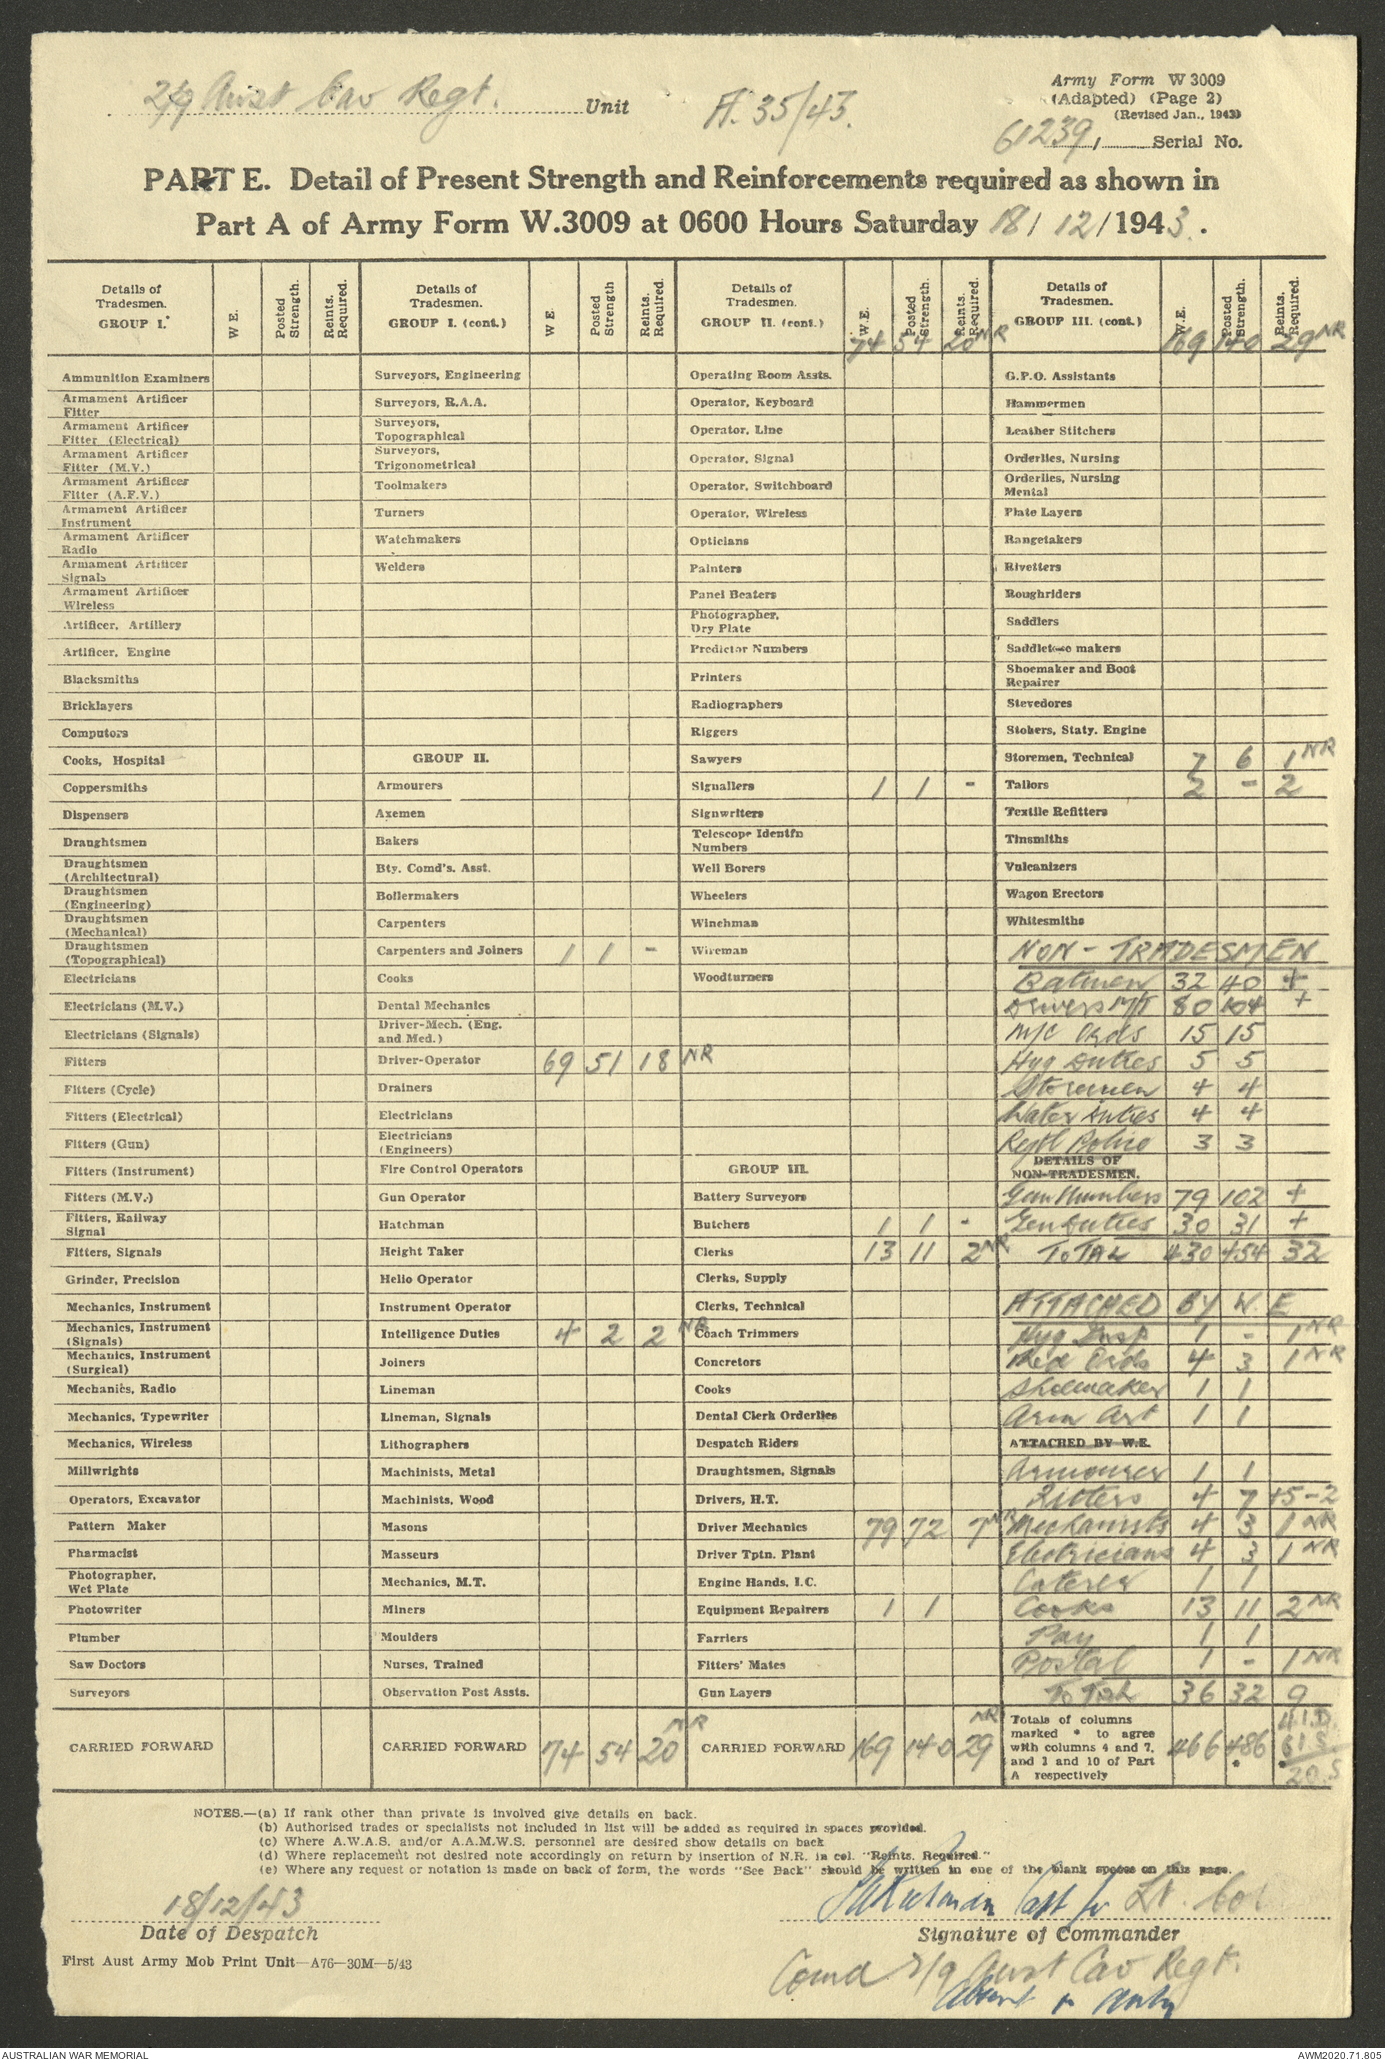 2/9 Aust Cav Regt. Unit
A. 35/43.
Army Form W 3009
(Adapted) (Page 2)
(Revised Jan., 1943)
61239, Serial No.
PART E. Detail of Present Strength and Reinforcements required as shown in
Part A of Army Form W.3009 at 0600 Hours Saturday 18/12/1943.
Details of Tradesmen. GROUP I. W E. Posted Strength. Reints. Required.
Details of Tradesmen. GROUP I. (cont.) W E. Posted Strength Reints. Required.
Details of Tradesmen. GROUP II. (cont.) W.E. Posted Strength. Reints. Required. 74 54 20 NR
Details of Tradesmen. GROUP III. (cont.) W.E. Posted Strength. Reints. Required. 169 140 29 NR
Ammunition Examiners
Armament Artificer Fitter
Armament Artificer Fitter (Electrical)
Armament Artificer Fitter (M.V.)
Armament Artificer Fitter (A.F.V.)
Armament Artificer Instrument
Armament Artificer Radio
Armament Artificer Signals
Armament Artificer Wireless
Artificer, Artillery
Artificer, Engine
Blacksmiths
Bricklayers
Computors
Cooks, Hospital
Coppersmiths
Dispensers
Draughtsmen
Draughtsmen (Architectural)
Draughtsmen (Engineering)
Draughtsmen (Mechanical)
Draughtsmen (Topographical)
Electricians
Electricians (M.V.)
Electricians (Signals)
Fitters
Fitters (Cycle)
Fitters (Electrical)
Fitters (Gun)
Fitters (Instrument)
Fitters (M.V.)
Fitters, Railway Signal
Fitters, Signals
Grinder, Precision
Mechanics, Instrument
Mechanics, Instrument (Signals)
Mechanics, Instrument (Surgical)
Mechanics, Radio
Mechanics, Typewriter
Mechanics, Wireless
Millwrights
Operators, Excavator
Pattern Maker
Pharmacist
Photographer, Wet Plate
Photowriter
Plumber
Saw Doctors
Surveyors
CARRIED FORWARD
Surveyors, Engineering
Surveyors, R.A.A.
Surveyors, Topographical
Surveyors, Trigonometrical
Toolmakers
Turners
Watchmakers
Welders
GROUP II.
Armourers
Axemen
Bakers
Bty. Comd's. Asst.
Boilermakers
Carpenters
Carpenters and Joiners 1 1 -
Cooks
Dental Mechanics
Driver-Mech. (Eng. and Med.)
Driver-Operator 69 51 18 NR
Drainers
Electricians
Electricians (Engineers)
Fire Control Operators
Gun Operator
Hatchman
Height Taker
Helio Operator
Instrument Operator
Intelligence Duties 4 2 2 NR
Joiners
Lineman
Lineman, Signals
Lithographers
Machinists, Metal
Machinists, Wood
Masons
Masseurs
Mechanics, M.T.
Miners
Moulders
Nurses, Trained
Observation Post Assts.
CARRIED FORWARD 74 54 20 NR
Operating Room Assts.
Operator, Keyboard
Operator, Line
Operator, Signal
Operator, Switchboard
Operator, Wireless
Opticians
Painters
Panel Beaters
Photographer, Dry Plate
Predictor Numbers
Printers
Radiographers
Riggers
Sawyers
Signallers 1 1 -
Signwriters
Telescope Identfn Numbers
Well Borers
Wheelers
Winchman
Wireman
Woodturners
GROUP III.
Battery Surveyors
Butchers 1 1 -
Clerks 13 11 2 NR
Clerks, Supply
Clerks, Technical
Coach Trimmers
Concretors
Cooks
Dental Clerk Orderlies
Despatch Riders
Draughtsmen, Signals
Drivers, H.T.
Driver Mechanics 79 72 7 NR
Driver Tptn. Plant
Engine Hands, I.C.
Equipment Repairers 1 1
Farriers
Fitters' Mates
Gun Layers
CARRIED FORWARD 169 140 29 NR
G.P.O. Assistants
Hammermen
Leather Stitchers
Orderlies, Nursing
Orderlies, Nursing Mental
Plate Layers
Rangetakers
Rivetters
Roughriders
Saddlers
Saddletree makers
Shoemaker and Boot Repairer
Stevedores
Stokers, Staty. Engine
Storemen, Technical 7 6 1 NR
Tailors 2 - 2
Textile Refitters
Tinsmiths
Vulcanizers
Wagon Erectors
Whitesmiths
NON-TRADESMEN
Batmen 32 40 +
Drivers M/T 80 104 +
M/C Ords 15 15
Hyg Duties 5 5
Storemen 4 4
Water Duties 4 4
Regtl Police 3 3
DETAILS OF NON-TRADESMEN.
Gun Numbers 79 102 +
Gen Duties 30 31 +
TOTAL 430 454 32
ATTACHED BY W.E
Hyg Insp 1 - 1 NR
Med Ords 4 3 1 NR
Shoemaker 1 1
Arm Art 1 1
ATTACHED BY W.E.
Armourer 1 1
Fitters 4 7 +5-2
Mechanists 4 3 1 NR
Electricians 4 3 1 NR
Caterer 1 1
Cooks 13 11 2 NR
Pay 1 1
Postal 1 - 1 NR
Total 36 32 9
Totals of columns marked * to agree with columns 4 and 7, and 1 and 10 of Part A respectively 466 486 * 41D. 61S * 20.S
NOTES.—(a) If rank other than private is involved give details on back.
(b) Authorised trades or specialists not included in list will be added as required in spaces provided.
(c) Where A.W.A.S. and/or A.A.M.W.S. personnel are desired show details on back
(d) Where replacement not desired note accordingly on return by insertion of N.R. in col. "Reints. Required."
(e) Where any request or notation is made on back of form, the words "See Back" should be written in one of the blank spaces on this page.
18/12/43
Date of Despatch
Capt for Lt. Col
Signature of Commander
First Aust Army Mob Print Unit—A76—30M—5/43
Comd 2/9 Aust Cav Regt.
Absent on duty
AUSTRALIAN WAR MEMORIAL
AWM2020.71.805